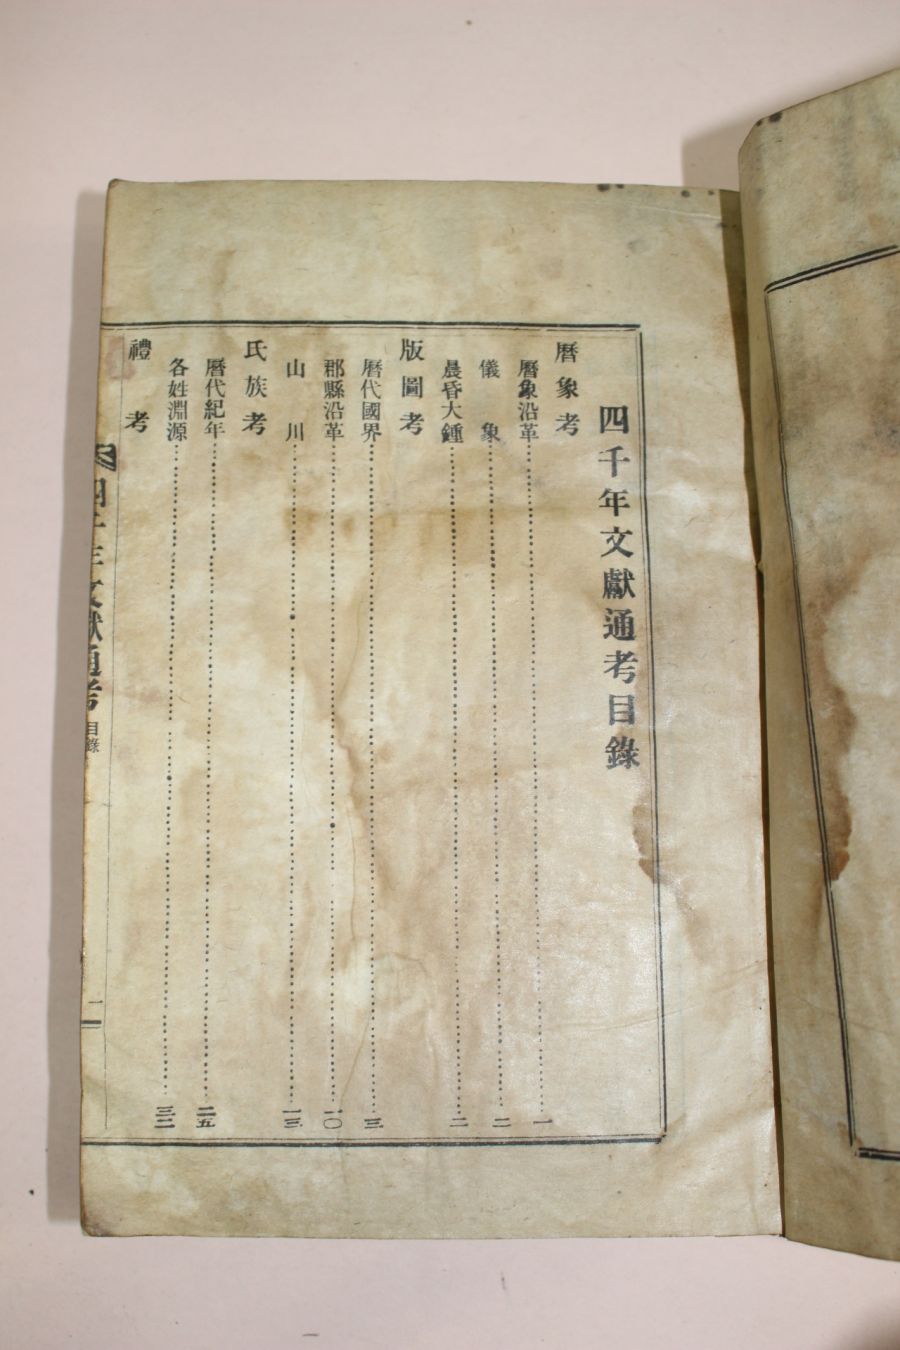 四千年文獻通考目錄
曆象考
曆象沿革……一
儀象……二
晨昏大鍾……二
版圖考
曆代國界……三
郡縣沿革……一〇
山川……一三
氏族考
曆代紀年……二五
各姓淵源……三二
禮考
四千年文獻通考 目錄 一